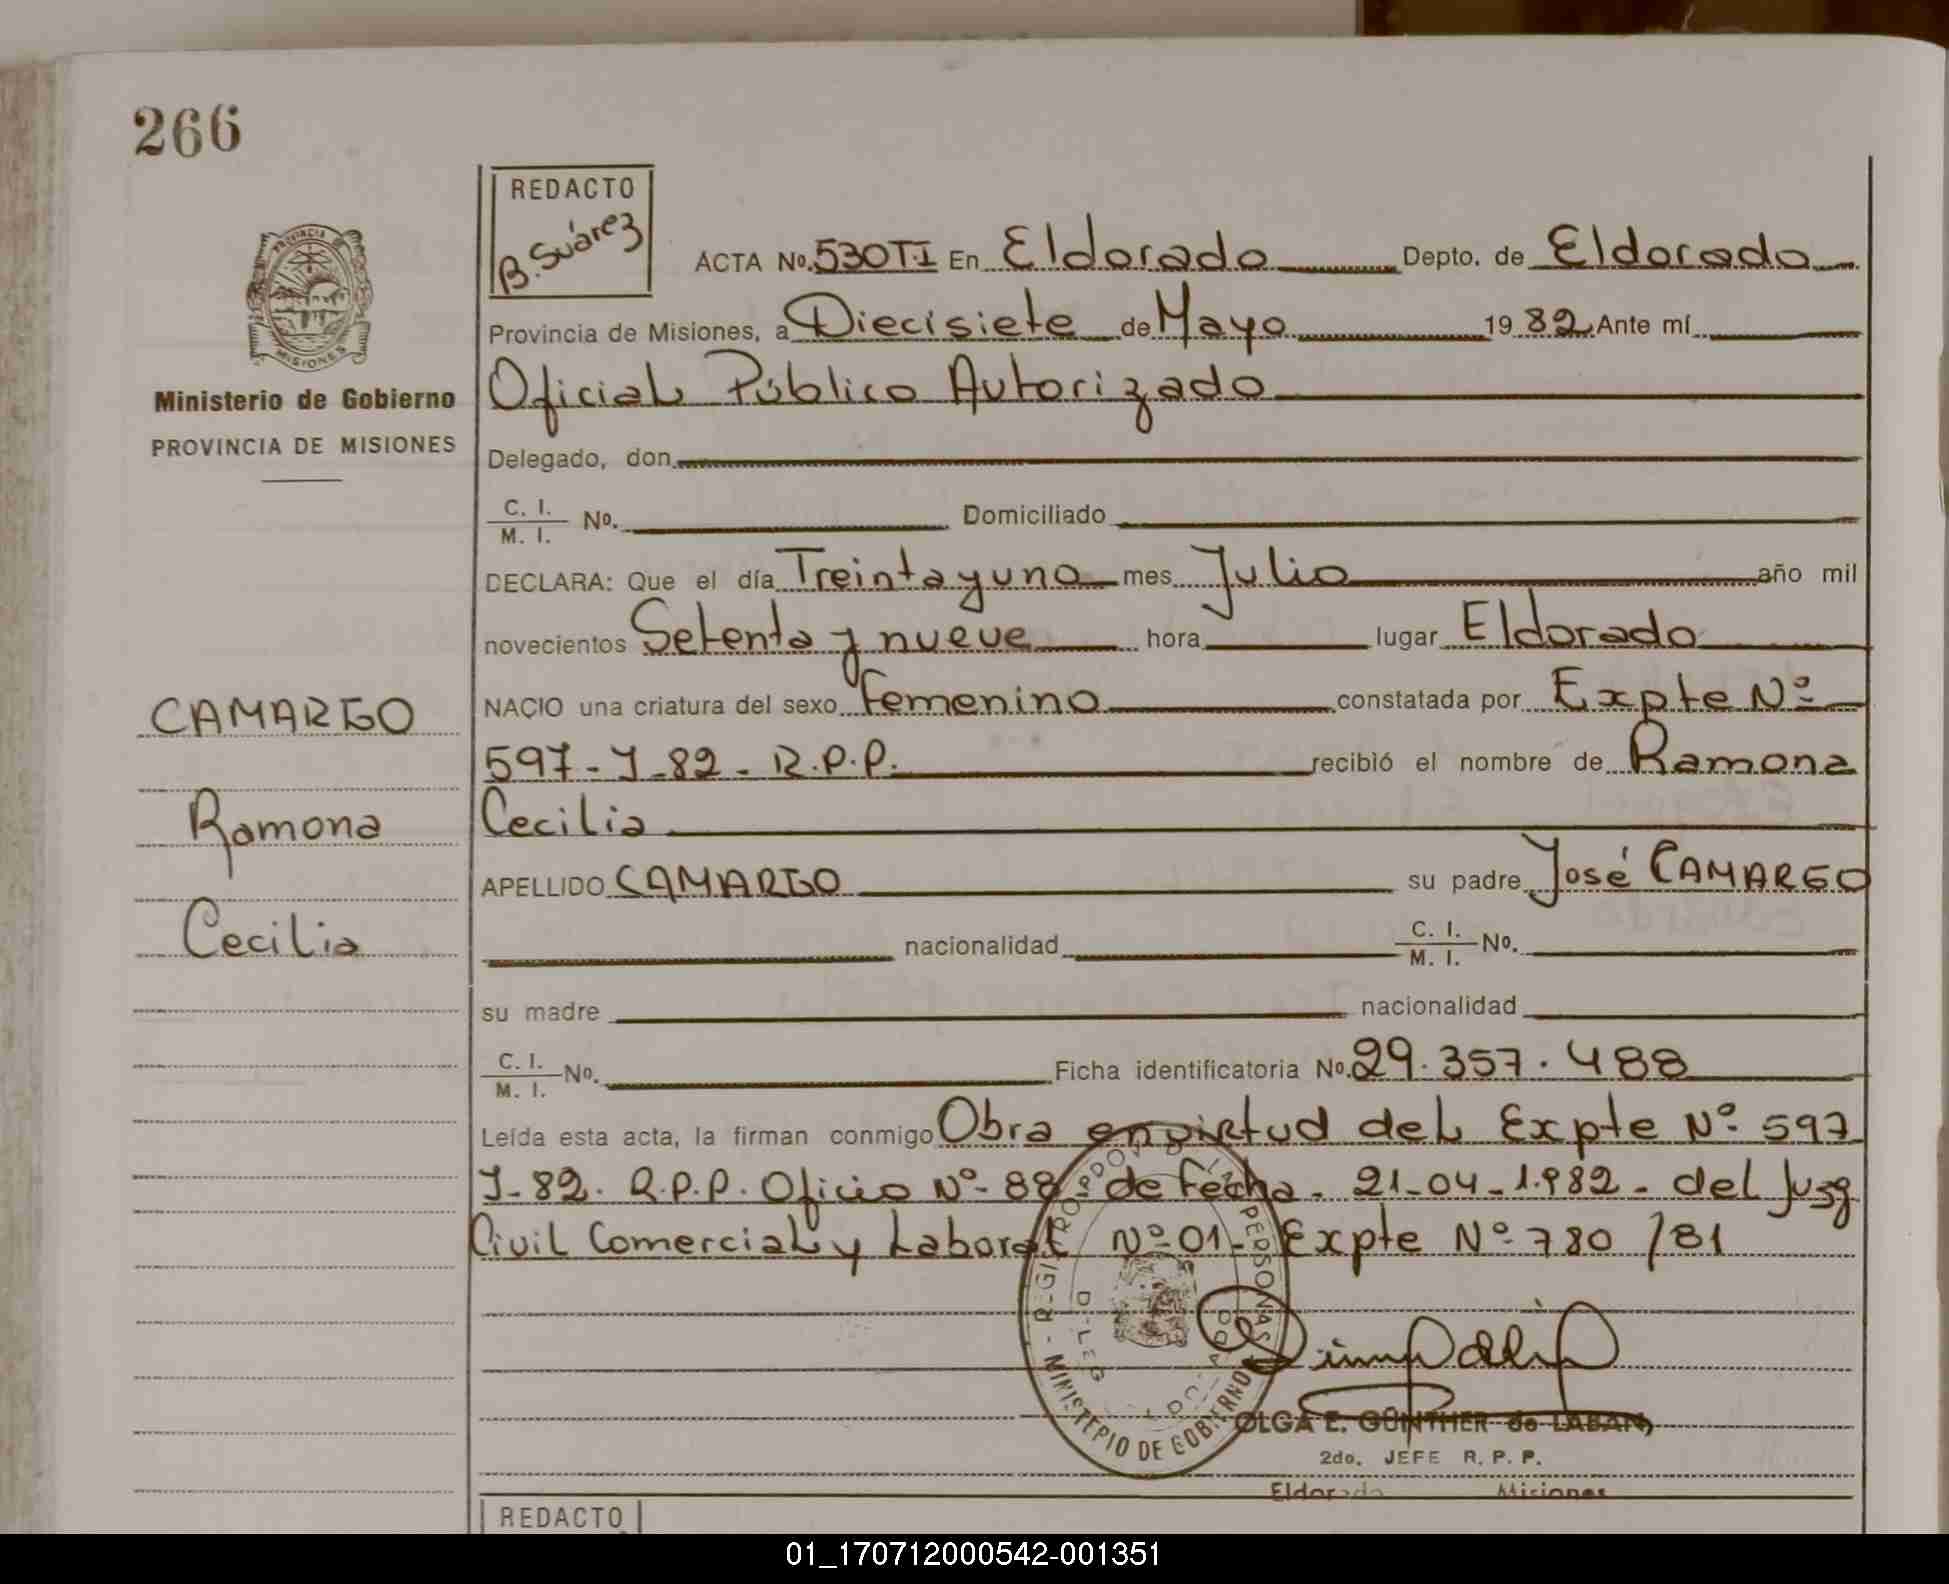 266
REDACTO
B. Suárez
PROVINCIA
MISIONES
Ministerio de Gobierno
PROVINCIA DE MISIONES
CAMARGO
Ramona
Cecilia
ACTA No. 530TI En Eldorado Depto. de Eldorado
Provincia de Misiones, a Diecisiete de Mayo 19 82 Ante mí
Oficial Público Autorizado
Delegado, don
C. I. / M. I. No. Domiciliado
DECLARA: Que el día Treinta y uno mes Julio año mil
novecientos Setenta y nueve hora lugar Eldorado
NACIO una criatura del sexo Femenino constatada por Expte Nº
597-J-82- R.P.P. recibió el nombre de Ramona
Cecilia
APELLIDO CAMARGO su padre José CAMARGO
nacionalidad C. I. / M. I. No.
su madre nacionalidad
C. I. / M. I. No. Ficha identificatoria No. 29.357.488
Leída esta acta, la firman conmigo Obra en virtud del Expte Nº 597
J-82. R.P.P. Oficio Nº 88 de fecha 21-04-1.982- del Juzg
Civil Comercial y Laboral Nº 01- Expte Nº 780/81
MINISTERIO DE GOBIERNO
OLGA E. GÜNTHER de LABAN
2do. JEFE R. P. P.
Eldorado Misiones
REDACTO
01_170712000542-001351